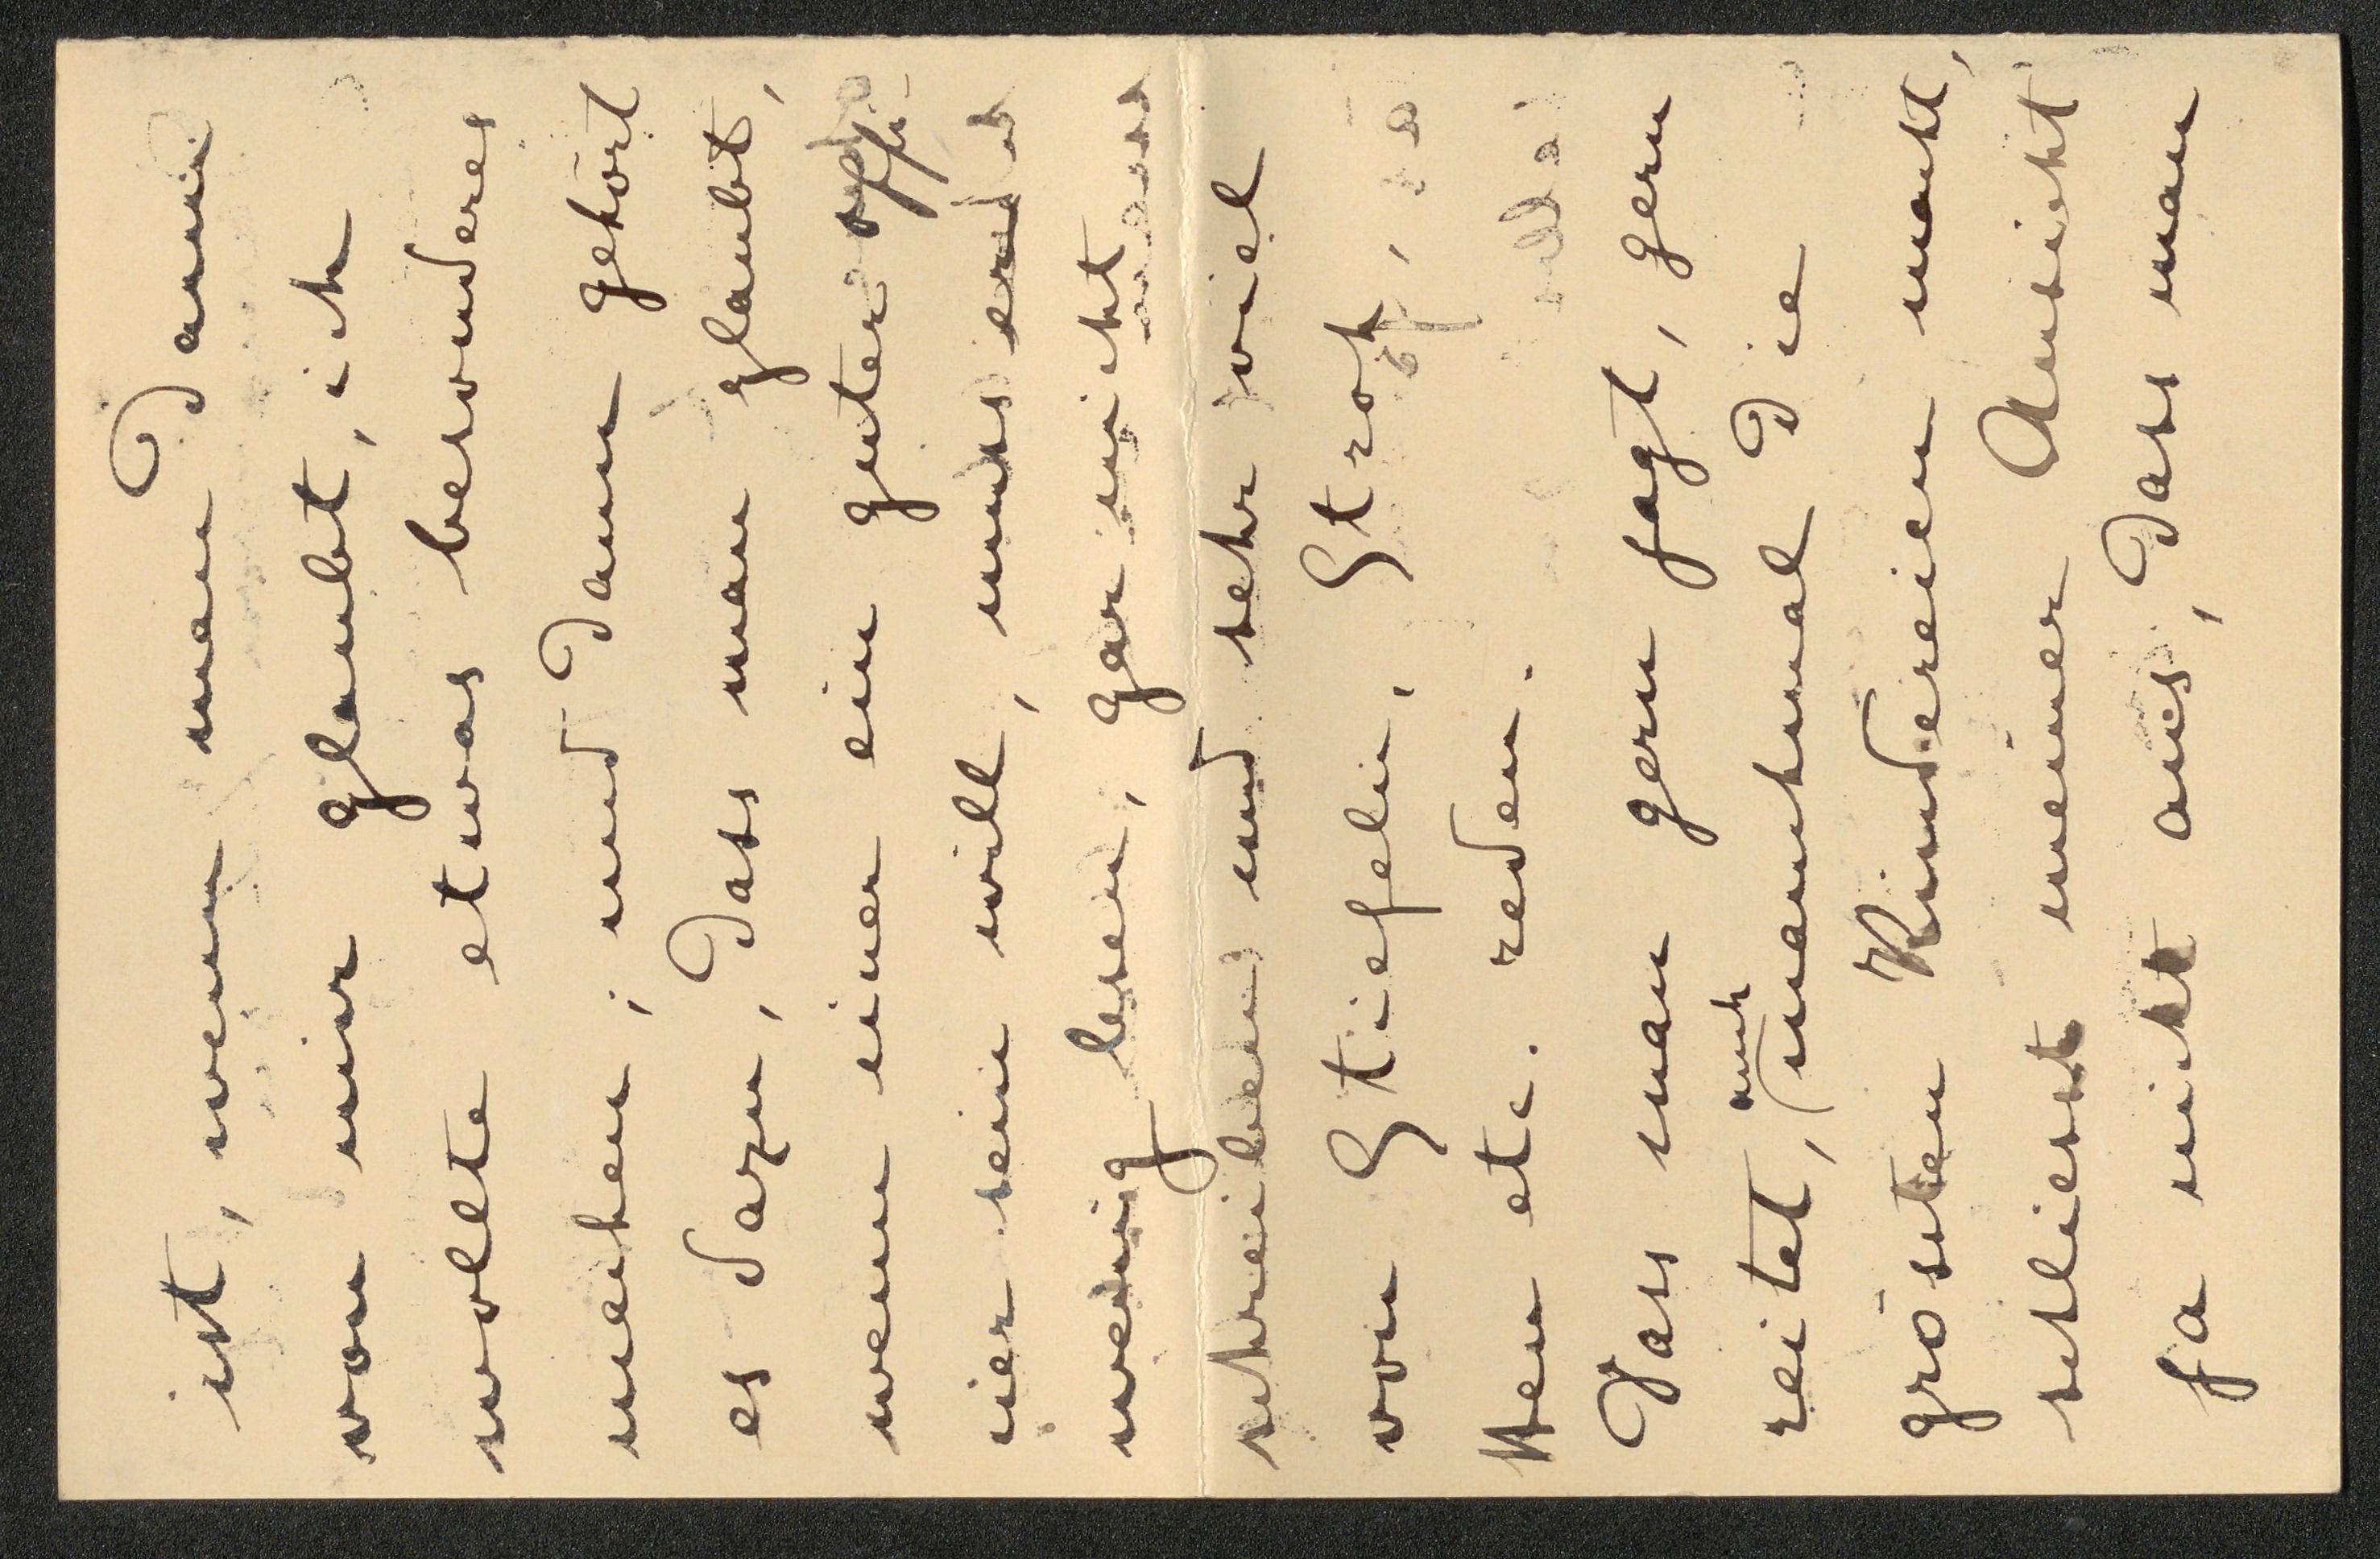 ist, wenn man dann
von mir glaubt, ich
wollte etwas besonderes
machen; und dann gehört
es dazu, dass man glaubt,
wenn einer ein guter Offi-
cier sein will, muss er
wenig lesen, gar nicht
schreiben und sehr viel
von Stiefeln, Stroh,
Heu etc. reden.
Dass man gern jagt, gern
reitet, auch manchmal die
grössten Kindereien macht,
schliesst meiner Ansicht
ja nicht aus, dass man